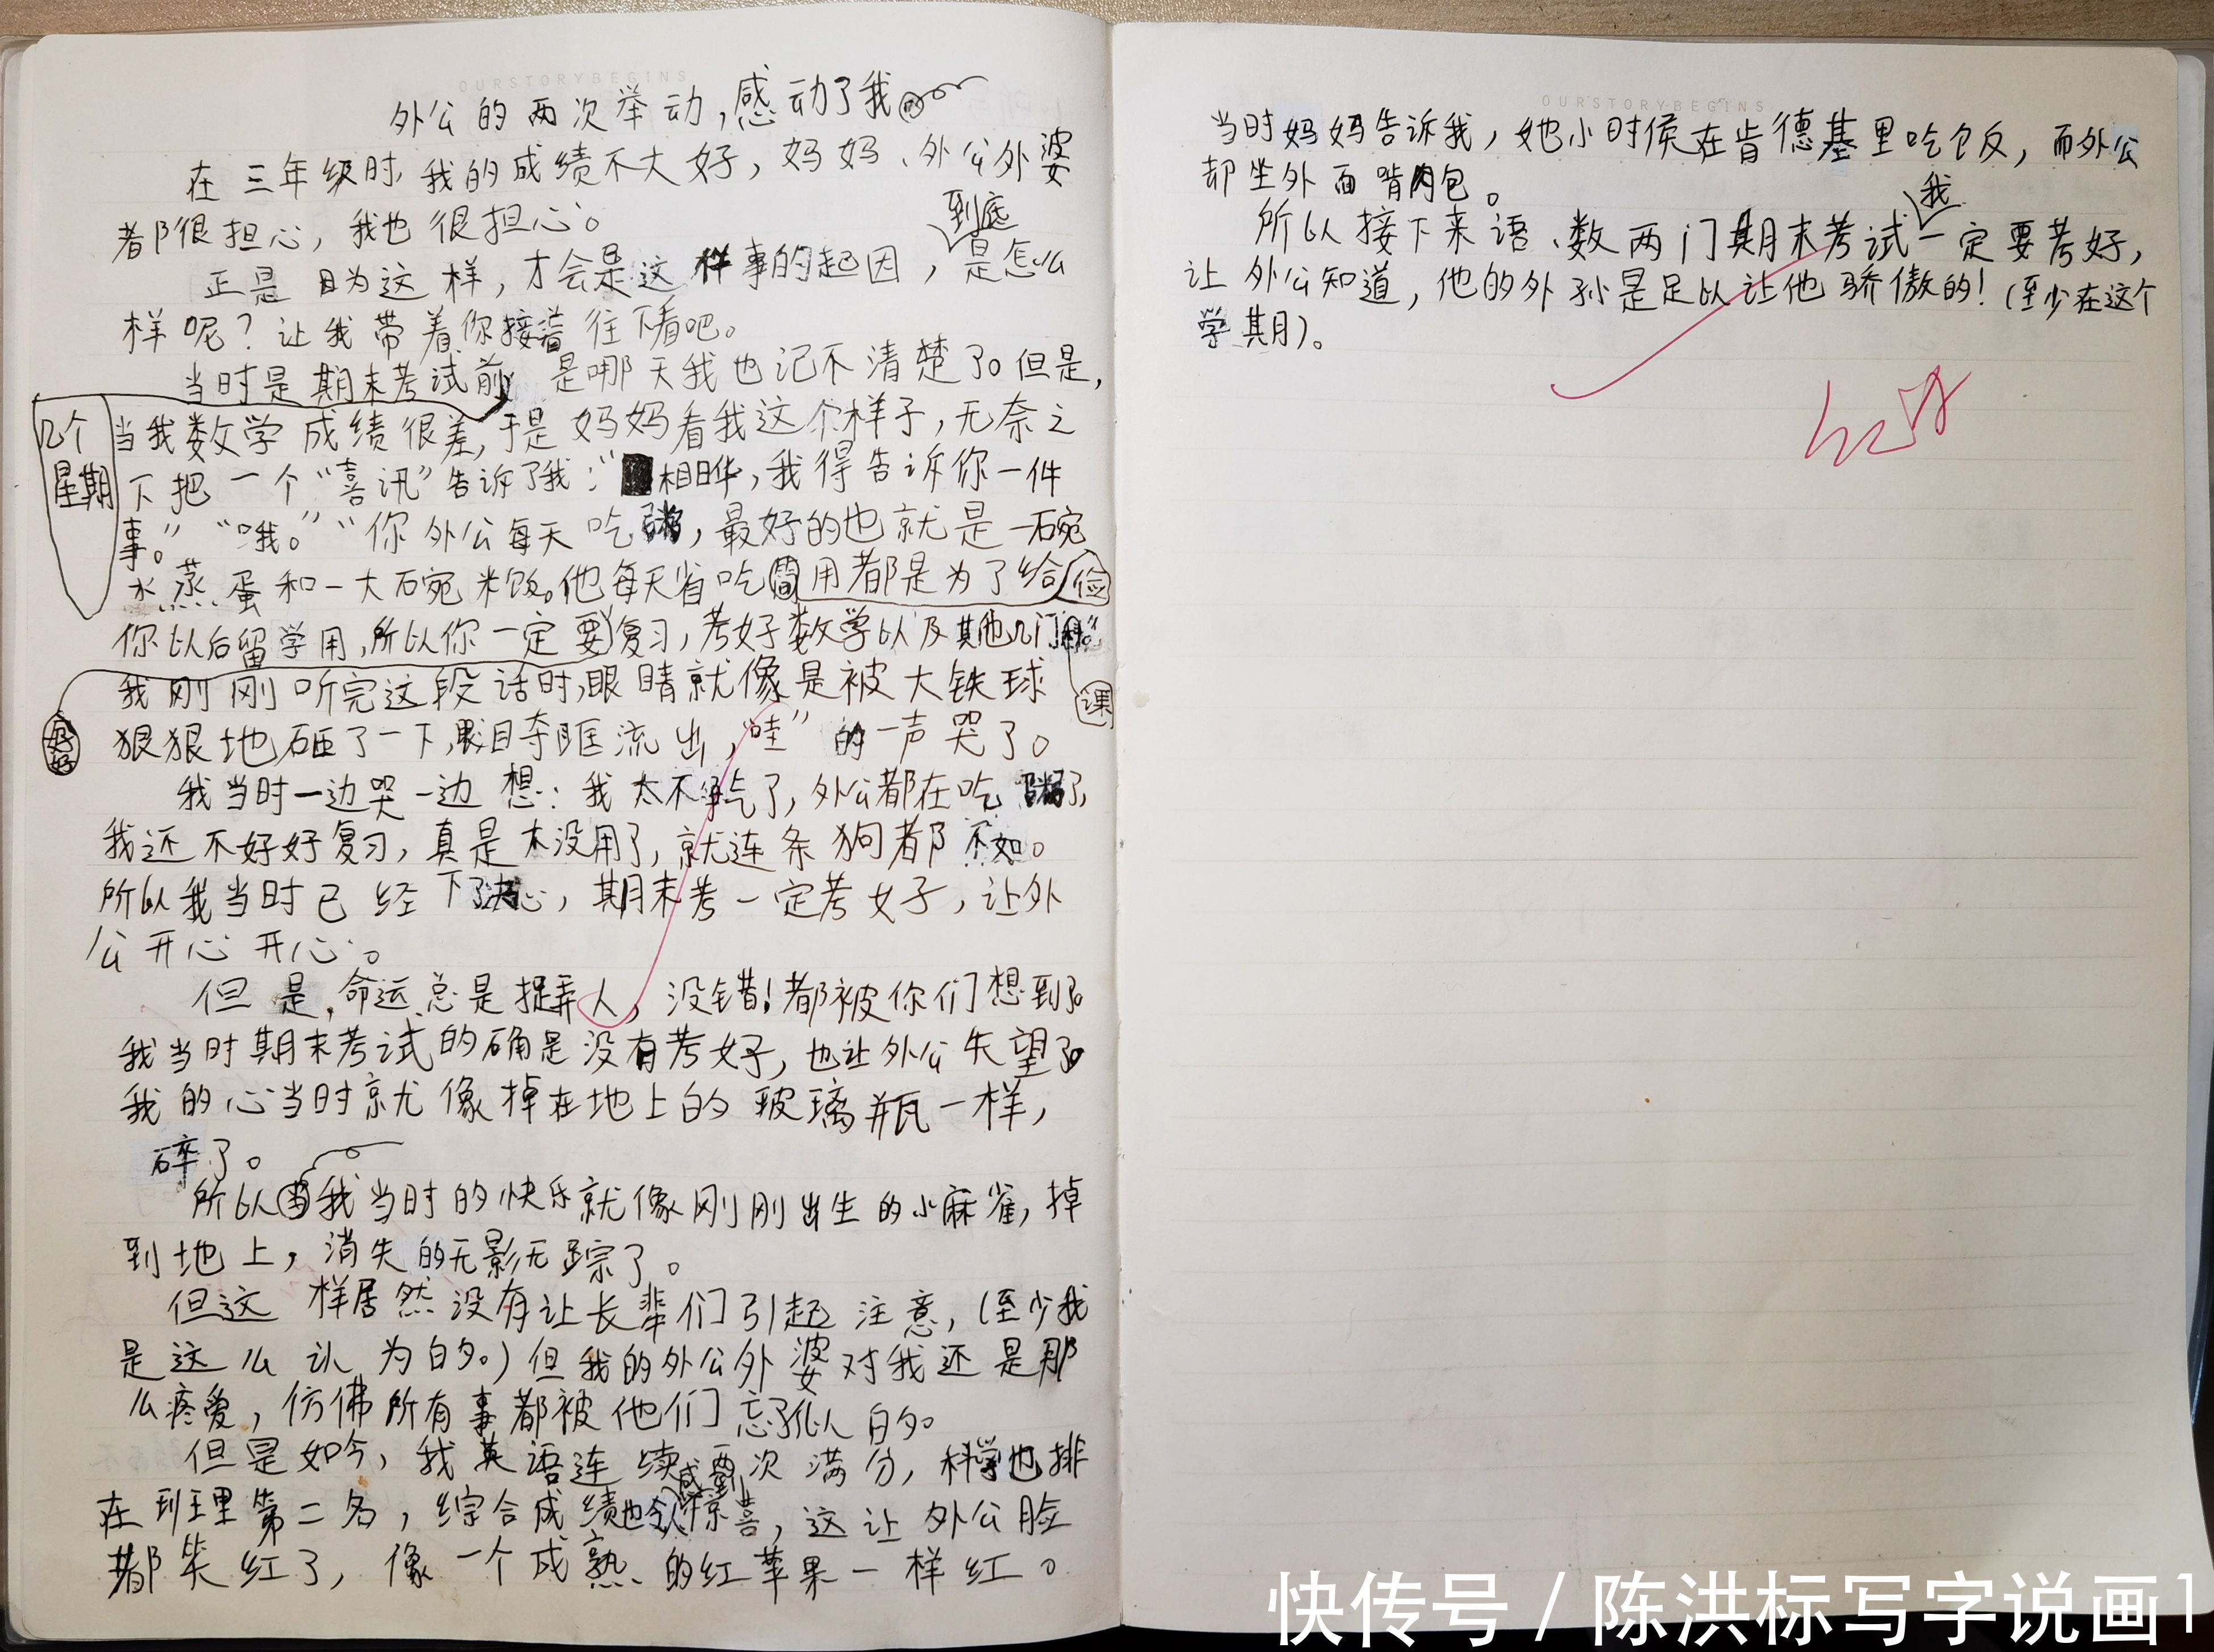 OURSTORYBEGINS
外公的两次举动,感动了我
在三年级时,我的成绩不大好,妈妈、外公外婆
都很担心,我也很担心。
到底
正是因为这样,才会是这样事的起因,是怎么
样呢?让我带着你接着往下看吧。
当时是期末考试前,是哪天我也记不清楚了。但是,
几个
星期
当我数学成绩很差,于是妈妈看我这个样子,无奈之
下把一个“喜讯”告诉了我:“相晔,我得告诉你一件
事。”“哦。”“你外公每天吃粥,最好的也就是一碗
水蒸蛋和一大碗米饭。他每天省吃用都是为了给
俭
你以后留学用,所以你一定要复习,考好数学以及其他几门
课
我刚刚听完这段话时,眼睛就像是被大铁球
好好
狠狠地砸了一下,眼泪夺眶流出,“哇”的一声哭了。
我当时一边哭一边想:我太不争气了,外公都在吃粥了,
我还不好好复习,真是太没用了,就连条狗都不如。
所以我当时已经下了决心,期末考一定考好,让外
公开心开心。
但是,命运总是捉弄人,没错!都被你们想到了。
我当时期末考试的确是没有考好,也让外公失望了。
我的心当时就像掉在地上的玻璃瓶一样,
碎了。
所以我当时的快乐就像刚刚出生的小麻雀,掉
到地上,消失的无影无踪了。
但这样居然没有让长辈们引起注意,(至少我
是这么认为的。)但我的外公外婆对我还是那
么疼爱,仿佛所有事都被他们忘了似的。
但是如今,我英语连续两次满分,科学也排
感到
在班里第二名,综合成绩也令人惊喜,这让外公脸
都笑红了,像一个成熟的红苹果一样红。
OURSTORYBEGINS
当时妈妈告诉我,她小时侯在肯德基里吃饭,而外公
却坐外面啃肉包。
我
所以接下来语、数两门期末考试一定要考好,
让外公知道,他的外孙是足以让他骄傲的!(至少在这个
学期)。
快传号 / 陈洪标写字说画1